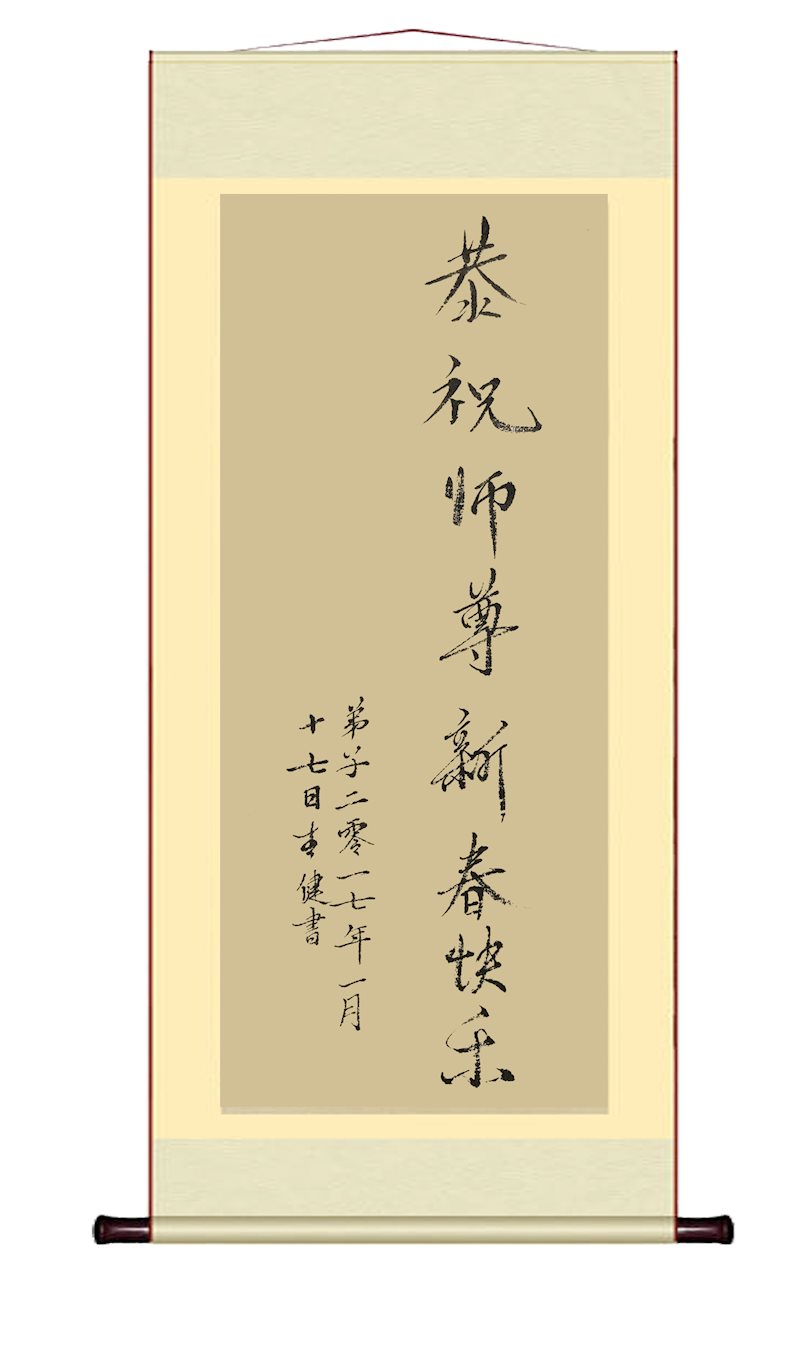 恭祝师尊新春快乐
弟子二零一七年一月
十七日志健書